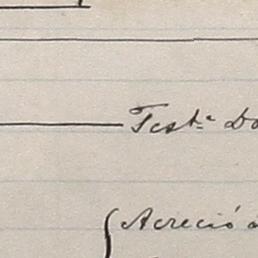 Testª Do
Acreció a